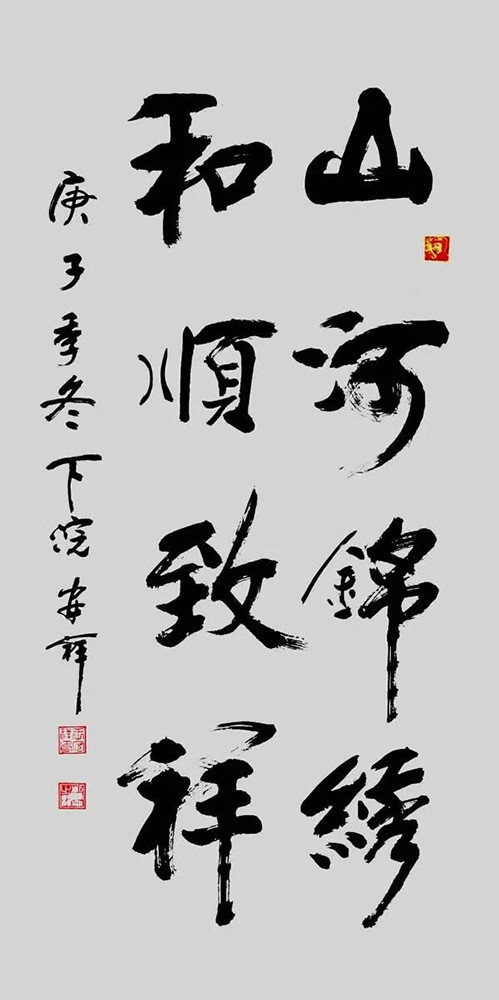 山河錦繡
和順致祥
庚子季冬下浣安祥